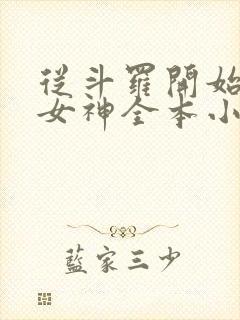 從斗羅開始
女神全本小
藍家三少